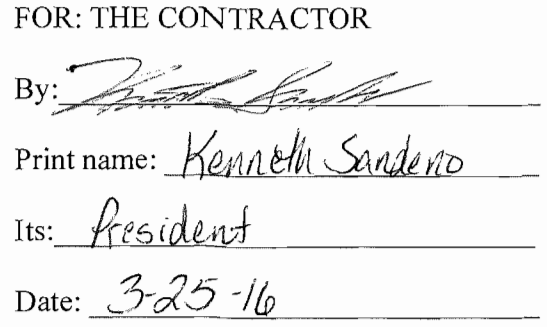 FOR: THE CONTRACTOR
By:
Print name: Kenneth Sandeno
Its: President
Date: 3-25-16